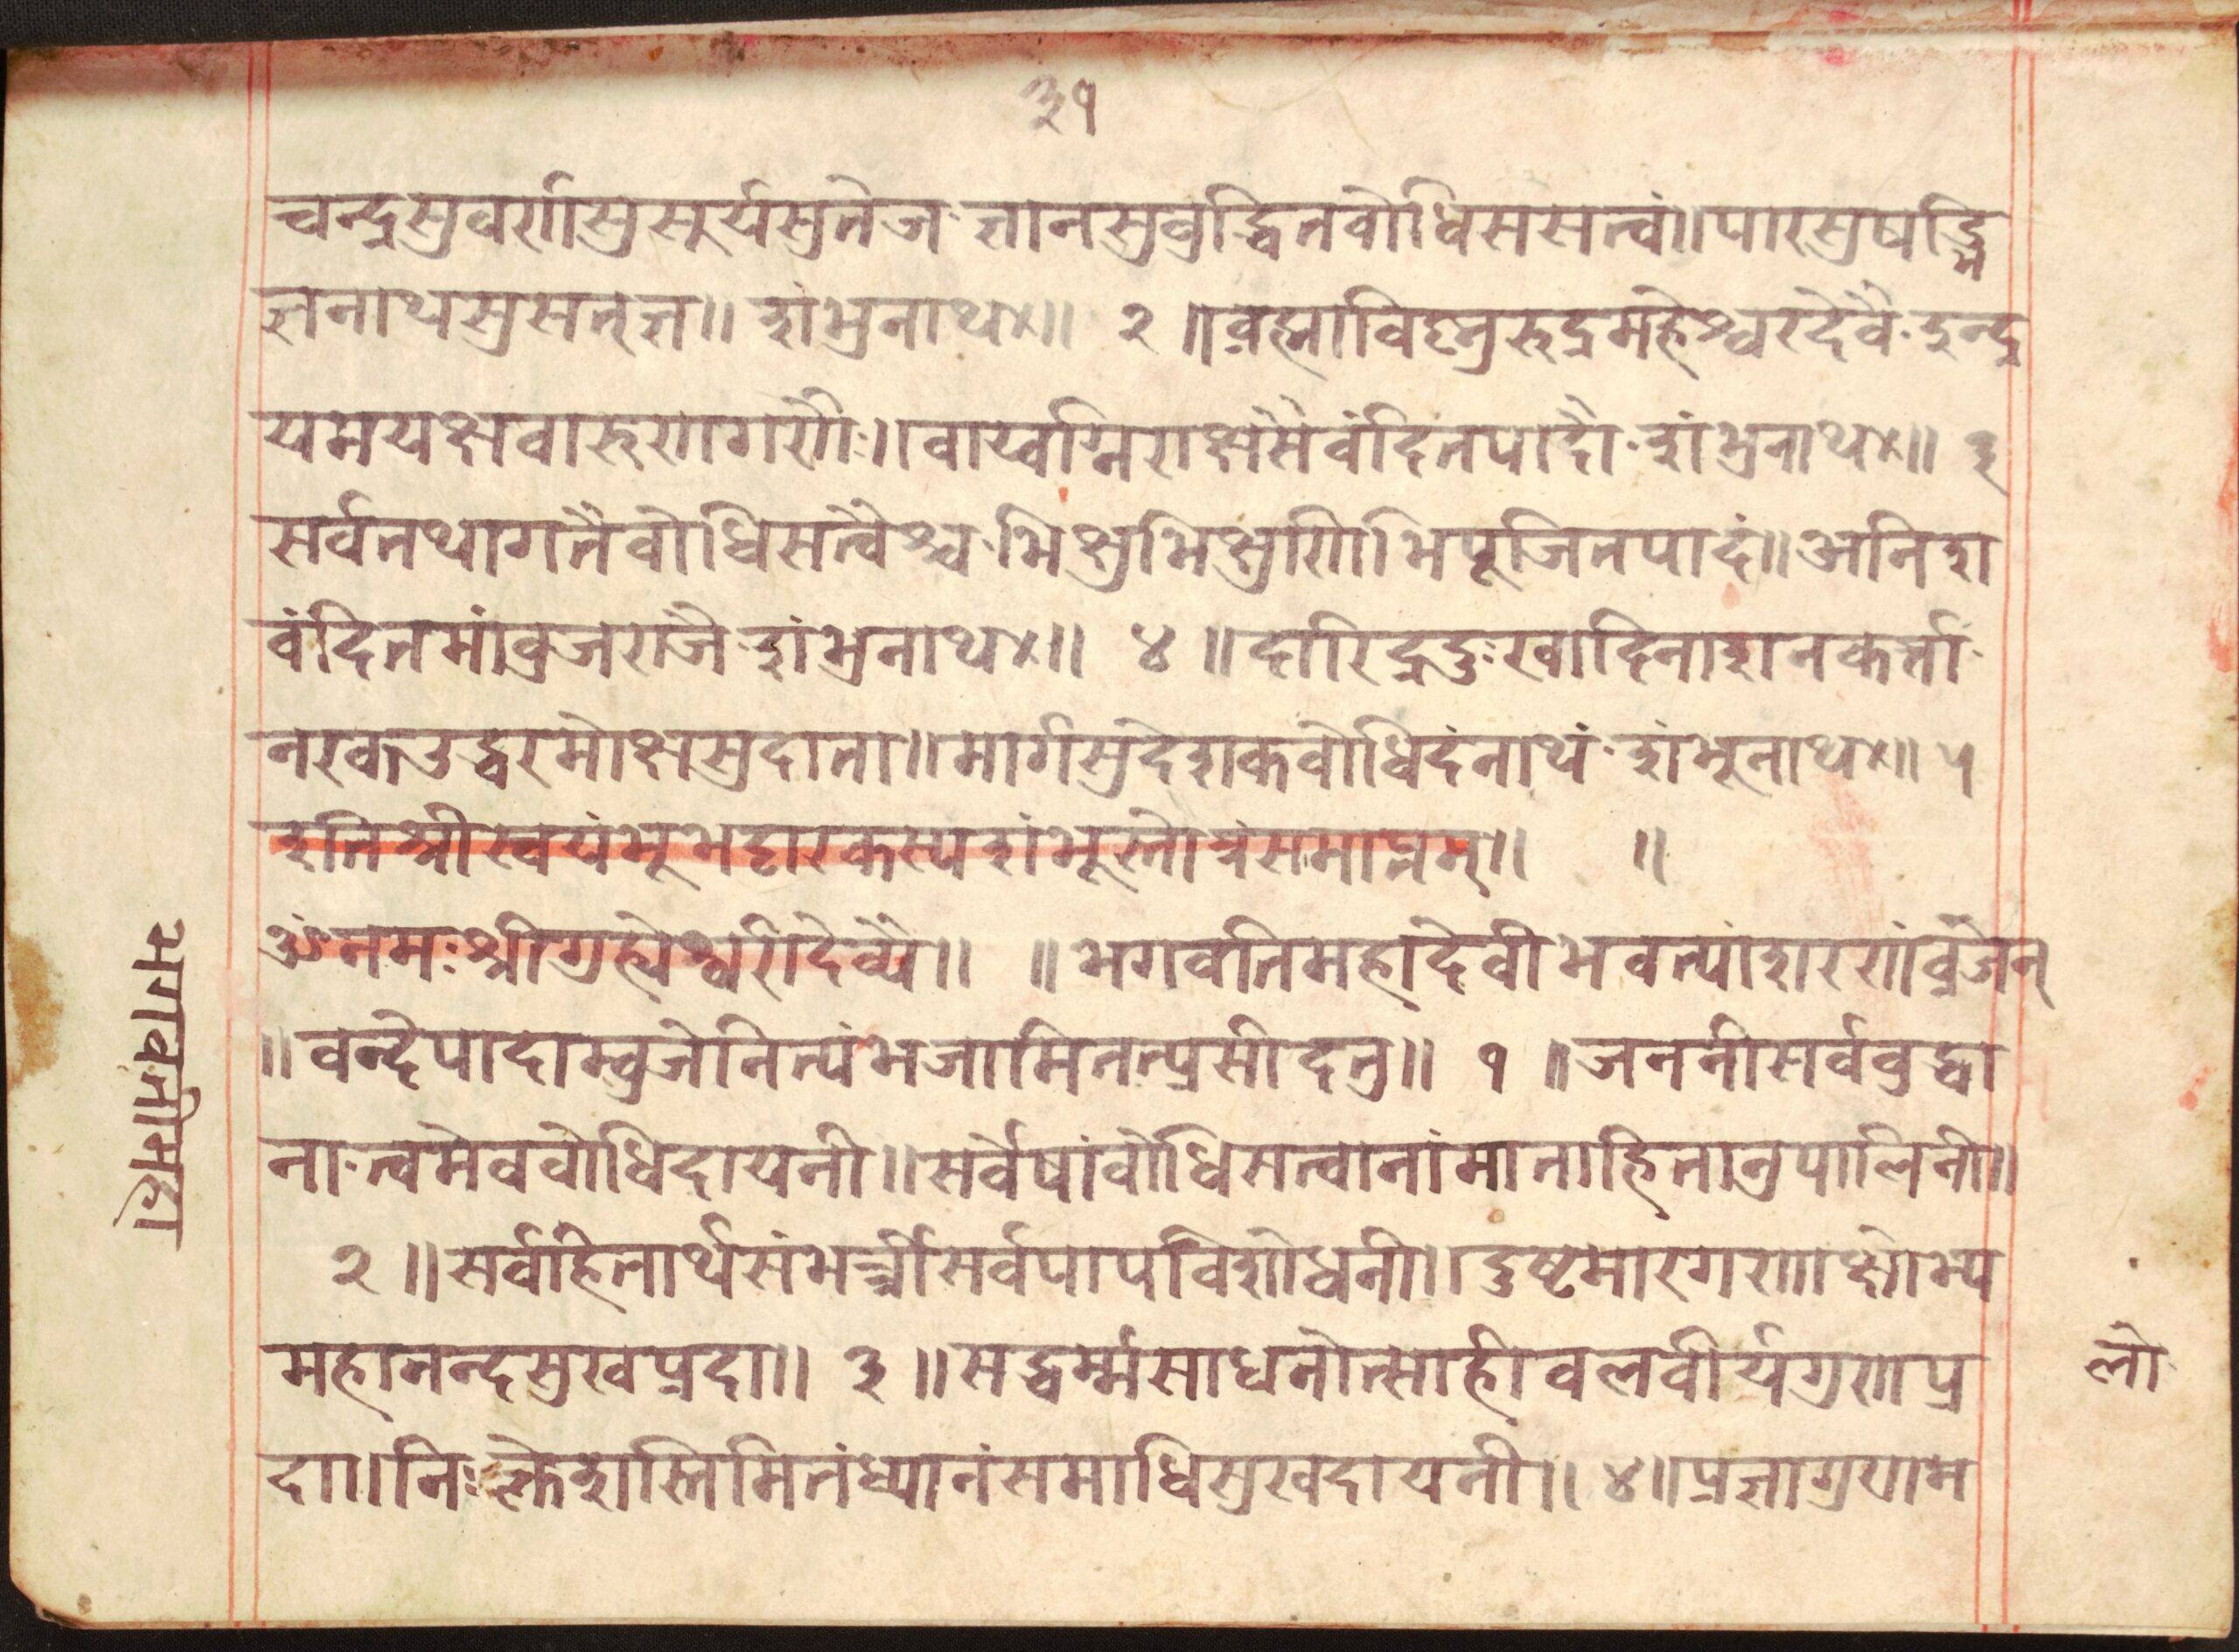 ३१
चन्द्रसुवर्णसुसुर्यसुतेज·ज्ञानसुवुद्धितवोधिससत्वं॥पारसुषड्भि
ज्ञनाथसुसत्त्त॥शंभुनाथ×॥ २ ॥व्रह्माविष्नुरुद्रमहेश्वरदेवै·इन्द्र
यमयक्षवारुणगणैः॥वाय्वग्निराक्षसैवंदितपादै·शंभुनाथ×॥ ३
सर्वतथागतैवोधिसत्वैश्च·भिक्षुभिक्षुणीभिपूजितपादं॥अतिश
वंदितमांवुजराजै·शंभुनाथ×॥ ४ ॥दारिद्रदुःखादिनाशनकर्त्ता·
नरकउद्धरमोक्षसुदाता॥मार्गसुदेशकवोधिदंनाथं·शंभूनाथ×॥ ५
इतिश्रीस्वयंभूभट्टारकस्यशंभूस्तोत्रंसमाप्तम्॥ ॥
ॐनमःश्रीगुह्येश्वरीदेव्यै॥ ॥भगवतिमहादेवीभवत्यांशरणंव्रजेत्
॥वन्देपादाम्वुजेनित्यंभजामितत्प्रसीदतु॥ १ ॥जननीसर्ववुद्धा
ना·त्वमेववोधिदायनी॥सर्वेषांवोधिसत्वानांमाताहितानुपालिनी॥
२ ॥सर्वहितार्थसंभर्त्त्रीसर्वपापविशोधनी॥दुष्टमारगणाक्षोभ्य
महानन्दसुखप्रदा॥ ३ ॥सद्धर्म्मसाधनोत्साहीवलवीर्यगुणप्र
दा॥निःक्लेशस्तिमितंध्यानंसमाधिसुखदायनी॥ ४॥प्रज्ञागुणम
भगवतीमहा
लो